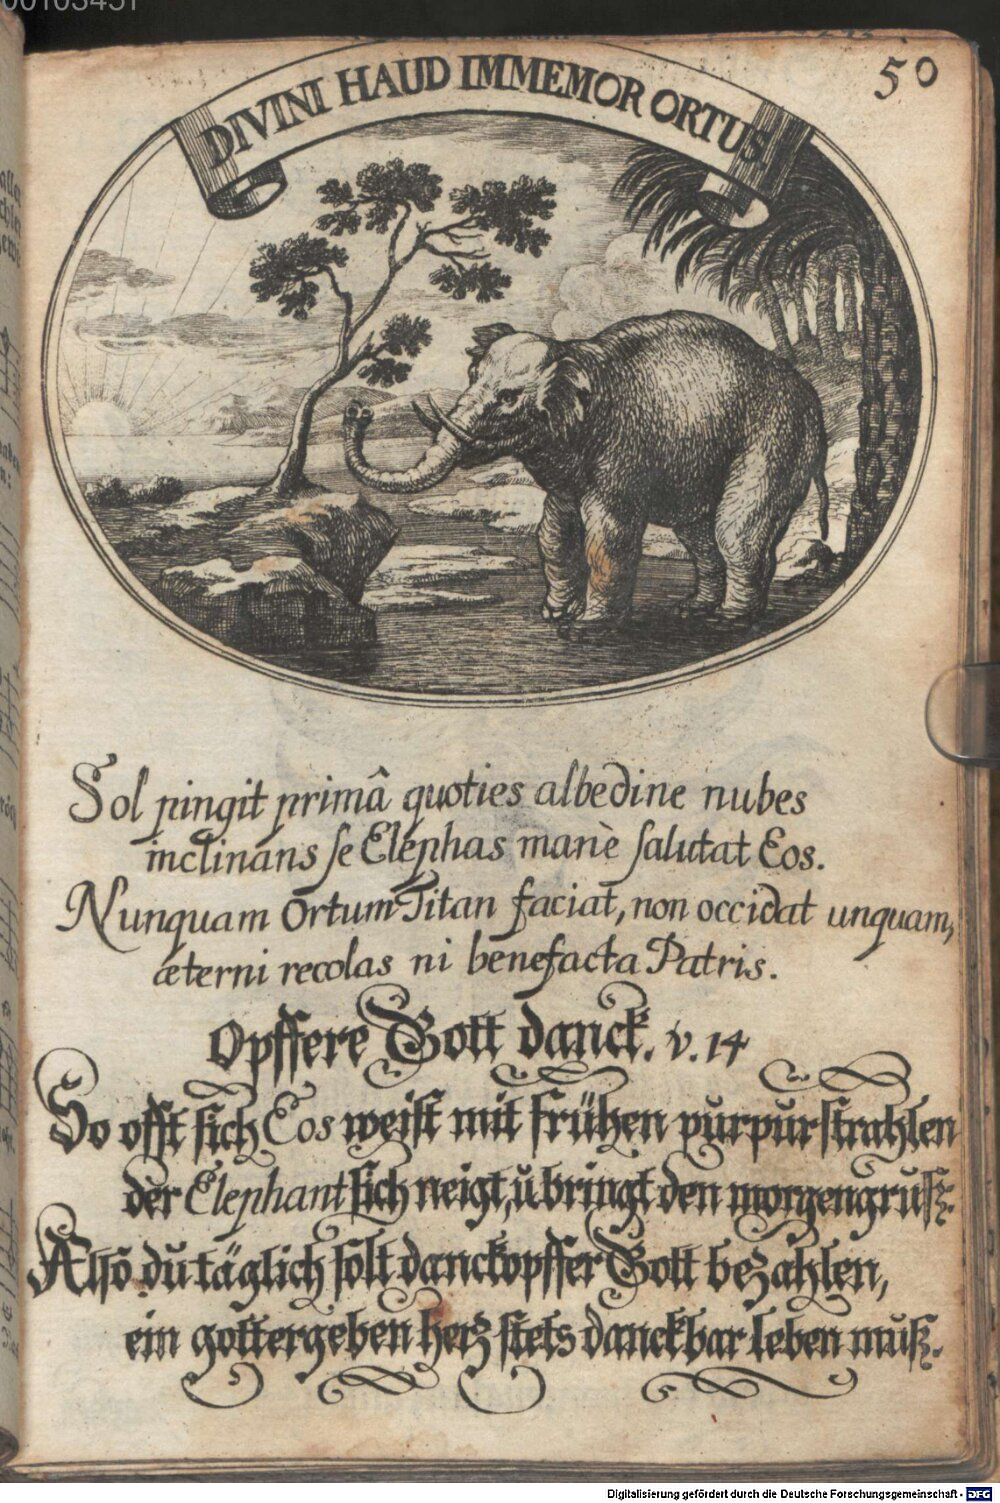 00103451
50
DIVINI HAUD IMMEMOR ORTUS
Sol pingit primâ quoties albedine nubes
inclinans se Elephas manè salutat Eos.
Nunquam Ortum Titan faciat, non occidat unquam,
æterni recolas ni benefacta Patris.
Opffere Gott danck. v. 14
So offt sich Eos weist mit frühen purpurstrahlen
der Elephant sich neigt, ŭ bringt den morgengruß.
Also dŭ täglich solt danckopffer Gott bezahlen,
ein gottergeben herz stets danckbar leben mŭß.
Digitalisierung gefördert durch die Deutsche Forschungsgemeinschaft - DFG